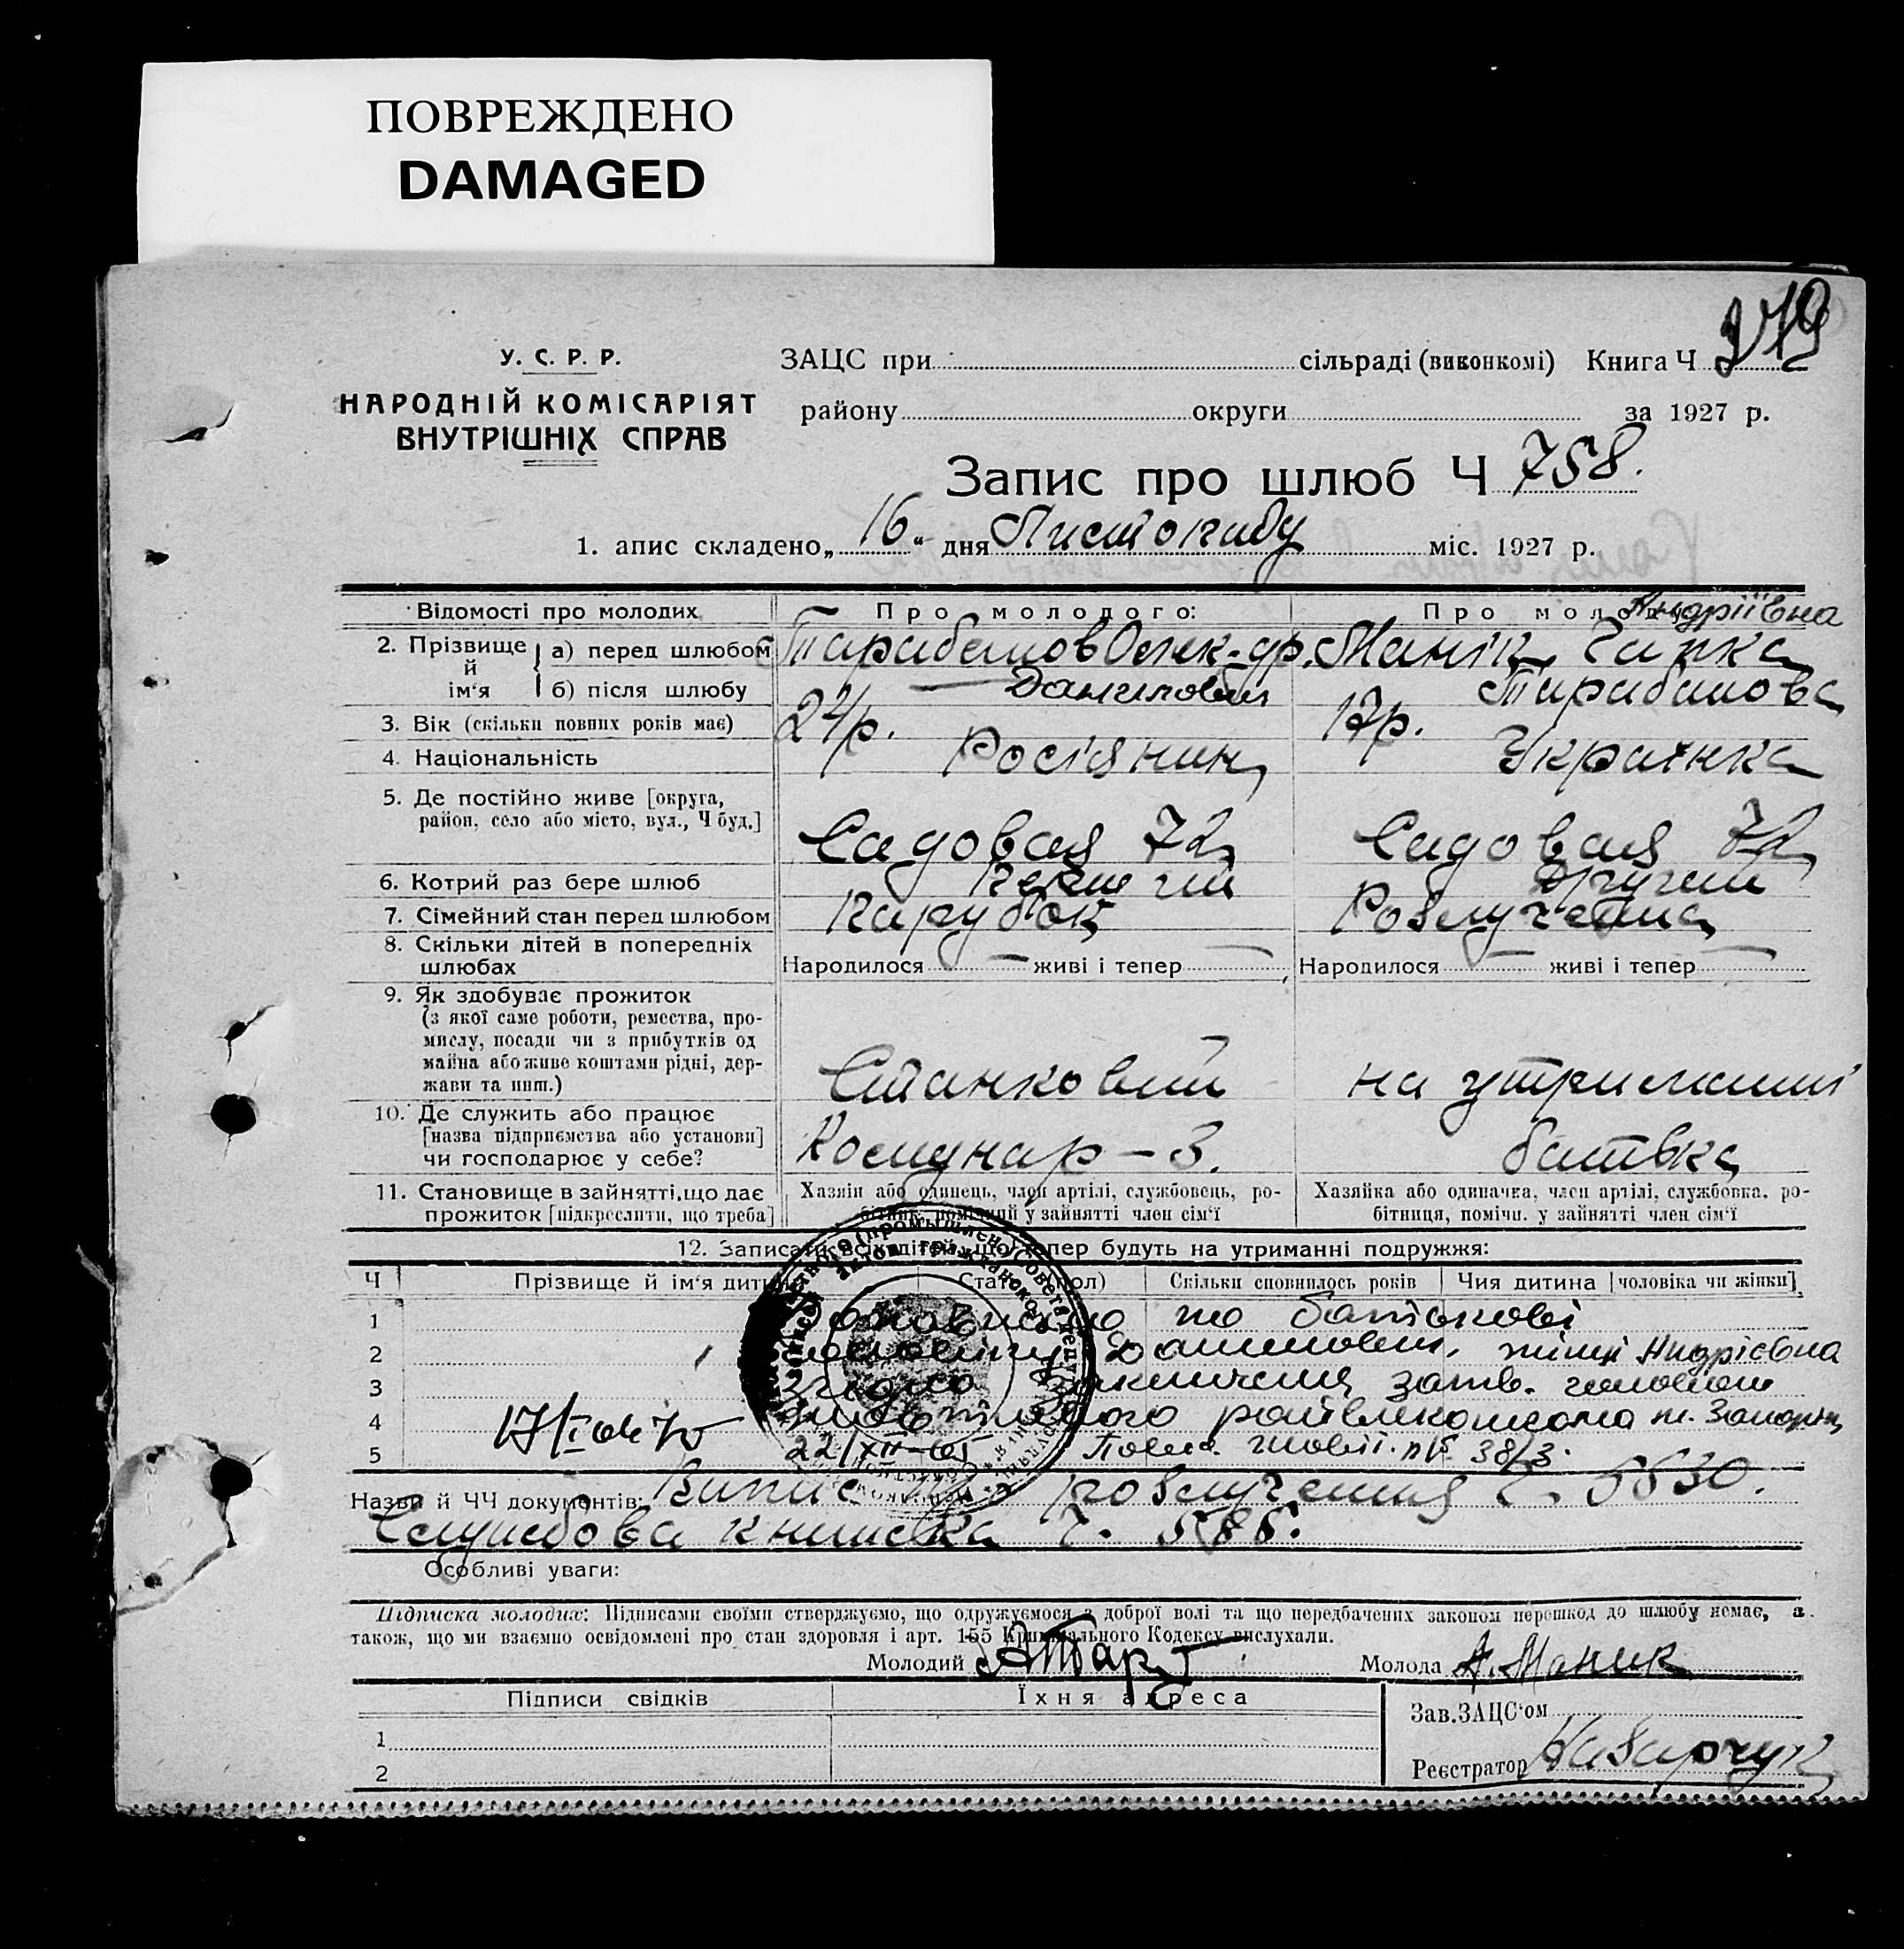 ПОВРЕЖДЕНО
DAMAGED
У. С. Р. Р.
НАРОДНІЙ КОМІСАРІЯТ
ВНУТРІШНІХ СПРАВ
ЗАЦС при сільраді (виконкомі) Книга Ч
району округи за 1927 р.
Запис про шлюб Ч 758.
1. апис складено „16“ дня Листопаду міс. 1927 р.
Відомості про молодих Про молодого: Про моло
Андріївна
2. Прізвище й ім'я а) перед шлюбом Тарабанов Олек-др. Маник
б) після шлюбу Данилович Тарабанова
3. Вік (скільки повних років має) 24р. р.
4. Національність Росіянин Українка
5. Де постійно живе [округа,
район, село або місто, вул., Ч буд.] Садовая 72 Садовая 72
6. Котрий раз бере шлюб Перший Другий
7. Сімейний стан перед шлюбом Парубок Розлучена
8. Скільки дітей в попередніх
шлюбах Народилося — живі і тепер — Народилося — живі і тепер —
9. Як здобуває прожиток
(з якої саме роботи, ремества, про-
мислу, посади чи з прибутків од
майна або живе коштами рідні, дер-
жави та инш.) на утриманні
10. Де служить або працює
[назва підприємства або установи]
чи господарює у себе? Комунар – 3. батька
11. Становище в зайнятті, що дає
прожиток [підкреслити, що треба]
Хазяїн або одинець, член артілі, службовець, ро-
бітник, помічний у зайнятті член сім'ї
Хазяйка або одиначка, член артілі, службовка, ро-
бітниця, помічн. у зайнятті член сім'ї
12. Записати всіх дітей, що тепер будуть на утриманні подружжя:
Ч Прізвище й ім'я дитини Стать (пол) Скільки сповнилось років Чия дитина [чоловіка чи жінки]
1 по батькові
2 Данилович, жінці Андрієвна
3 затв. головою
4 райвиконкома м.
5 22/XII-65 № 38/3.
Назви й ЧЧ документів: Випис розлучення Ч. 5530.
Службова книжка Ч.
Особливі уваги:
Підписка молодих: Підписами своїми стверджуємо, що одружуємося з доброї волі та що передбачених законом перешкод до шлюбу немає, а
також, що ми взаємно освідомлені про стан здоровля і арт. 155 Кримінального Кодексу вислухали.
Молодий Молода А. Маник
Підписи свідків Їхня адреса Зав. ЗАЦС'ом
1
2 Реєстратор